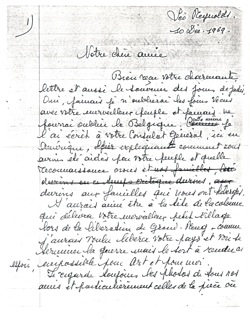 1)
Leo Reynolds
10 Dec. 1969
Notre chère amie
Bien reçu votre charmante
lettre et aussi le souvenir des jours de jadis.
Oui, jamais je n'oublierai les jours vécus
avec votre merveilleux peuple et jamais ne
pourrai oublier la Belgique
j'ai écrit à votre Consulat General, ici en
Amérique, expliquant comment nous
avions été aidés par votre peuple et quelle
reconnaissance nous et nos familles
devrions aux familles qui nous ont hébergés.
J'aurais aimé être à la tête de la colonne
qui délivra votre merveilleux petit village
lors de la libération de Grand-, comme
j'aurais voulu libérer votre pays et
terminer la guerre mais le sort a rendu
impossible pour Art et pour moi.
Je regarde toujours les photos de tous nos
amis et particulièrement celles de la pièce où